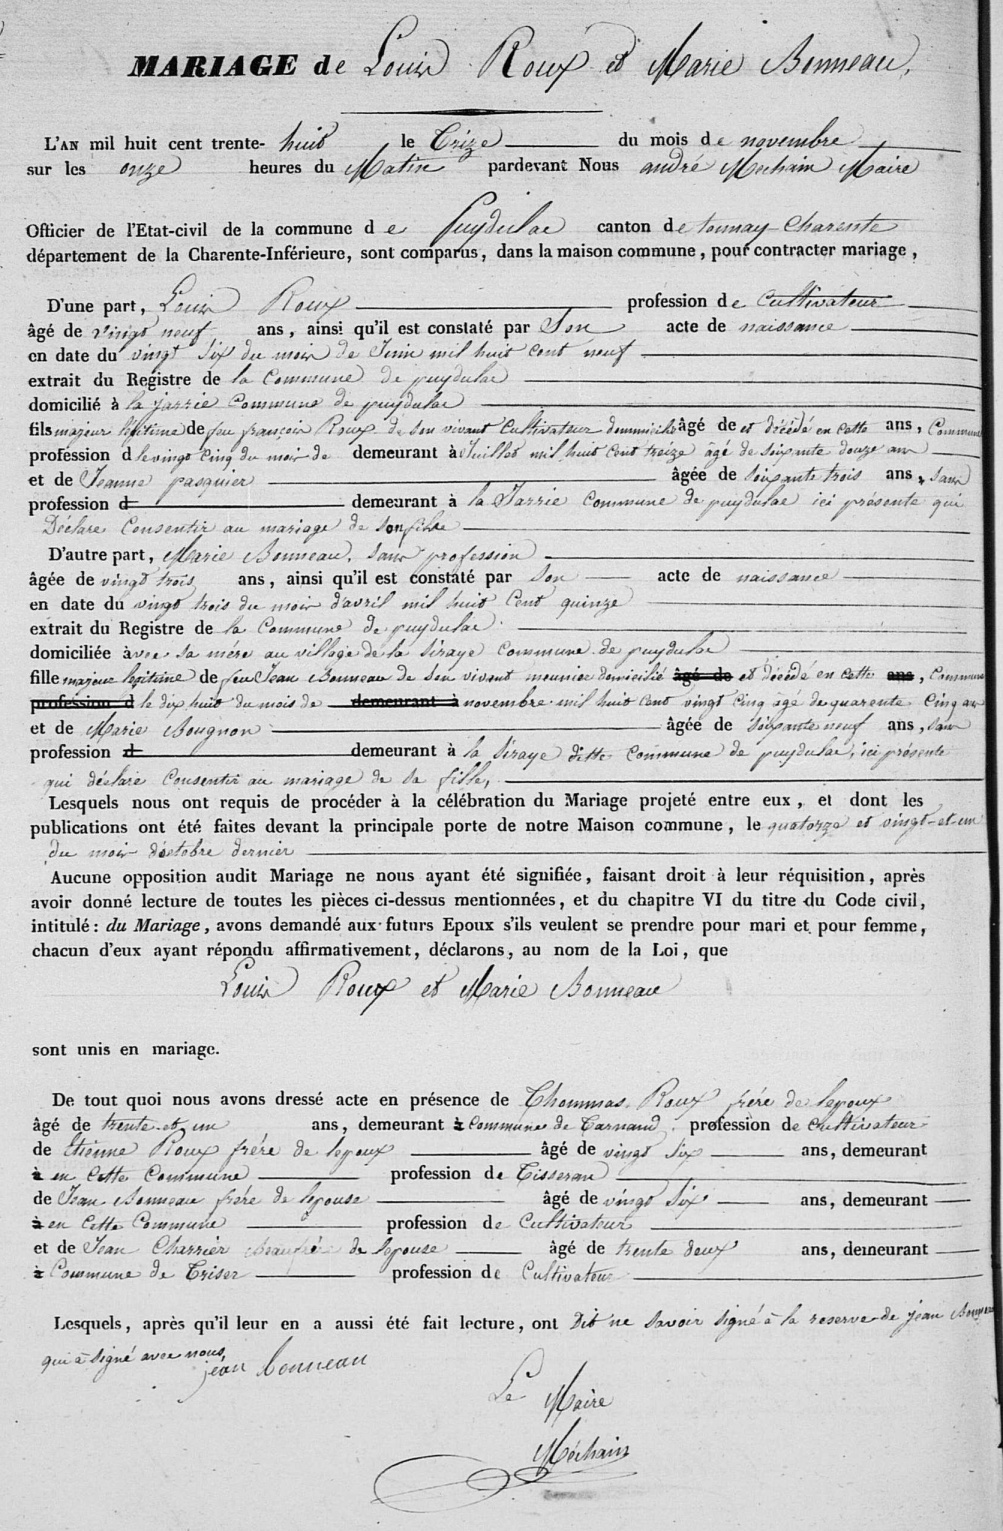 MARIAGE de Louis Roux et Marie Bonneau.
L'AN mil huit cent trente- huit le Trize du mois de novembre
sur les onze heures du Matin pardevant Nous andré Mechain Maire
Officier de l'Etat-civil de la commune de Puydulac canton de tonnay-Charente
département de la Charente-Inférieure, sont comparus, dans la maison commune, pour contracter mariage,
D'une part, Louis Roux profession de Cultivateur
âgé de vingt neuf ans, ainsi qu'il est constaté par Son acte de naissance
en date du vingt Six du mois de Juin mil huit cent neuf
extrait du Registre de la Commune de puydulac
domicilié à la jarrie Commune de puydulac
fils majeur légitime de feu françois Roux de son vivant Cultivateur dommicilié âgé de et décédé en cette ans, Commune
profession d le vingt cinq du mois de demeurant à Juillet mil huit cent treize âgé de soixante douze ans
et de Jeanne pasquier âgée de soixante trois ans, sans
profession d demeurant à la Jarrie Commune de puydulac ici présente qui
Déclare Consentir au mariage de son fils
D'autre part, Marie Bonneau, sans profession
âgée de vingt trois ans, ainsi qu'il est constaté par son acte de naissance
en date du vingt trois du mois d'avril mil huit Cent quinze
extrait du Registre de la Commune de puydulac
domiciliée avec sa mére au village de la Siraye Commune de puydulac
fille majeure legitime de feu Jean Bonneau de son vivant meunier domicilié âgé de et décédé en cette ans, Commune
profession d le dix huit du mois de demeurant à novembre mil huit cent vingt cinq âgé de quarente Cinq ans
et de Marie Bougnon âgée de soixante neuf ans, sans
profession d demeurant à la Siraye ditte Commune de puydulac, ici présente
qui déclare Consentir au mariage de sa fille,
Lesquels nous ont requis de procéder à la célébration du Mariage projeté entre eux, et dont les
publications ont été faites devant la principale porte de notre Maison commune, le quatorze et vingt-et-un
du mois d'octobre dernier
Aucune opposition audit Mariage ne nous ayant été signifiée, faisant droit à leur réquisition, après
avoir donné lecture de toutes les pièces ci-dessus mentionnées, et du chapitre VI du titre du Code civil,
intitulé: du Mariage, avons demandé aux futurs Epoux s'ils veulent se prendre pour mari et pour femme,
chacun d'eux ayant répondu affirmativement, déclarons, au nom de la Loi, que
Louis Roux et Marie Bonneau
sont unis en mariage.
De tout quoi nous avons dressé acte en présence de Thommas Roux frére de lepoux
âgé de trente et un ans, demeurant à Commune de Tarnand profession de Cultivateur
de Etienne Roux frére de lepoux âgé de vingt Six ans, demeurant
à en Cette Commune profession de Tisseran
de Jean Bonneau frere de lepouse âgé de vingt Six ans, demeurant
à en Cette Commune profession de Cultivateur
et de Jean Charrier Beaufrére de lepouse âgé de trente deux ans, demeurant
à Commune de Triser profession de Cultivateur
Lesquels, après qu'il leur en a aussi été fait lecture, ont Dit ne savoir signé à la reserve de jean Bonneau
qui à signé avec nous.
jean bonneau
Le Maire
Méchain